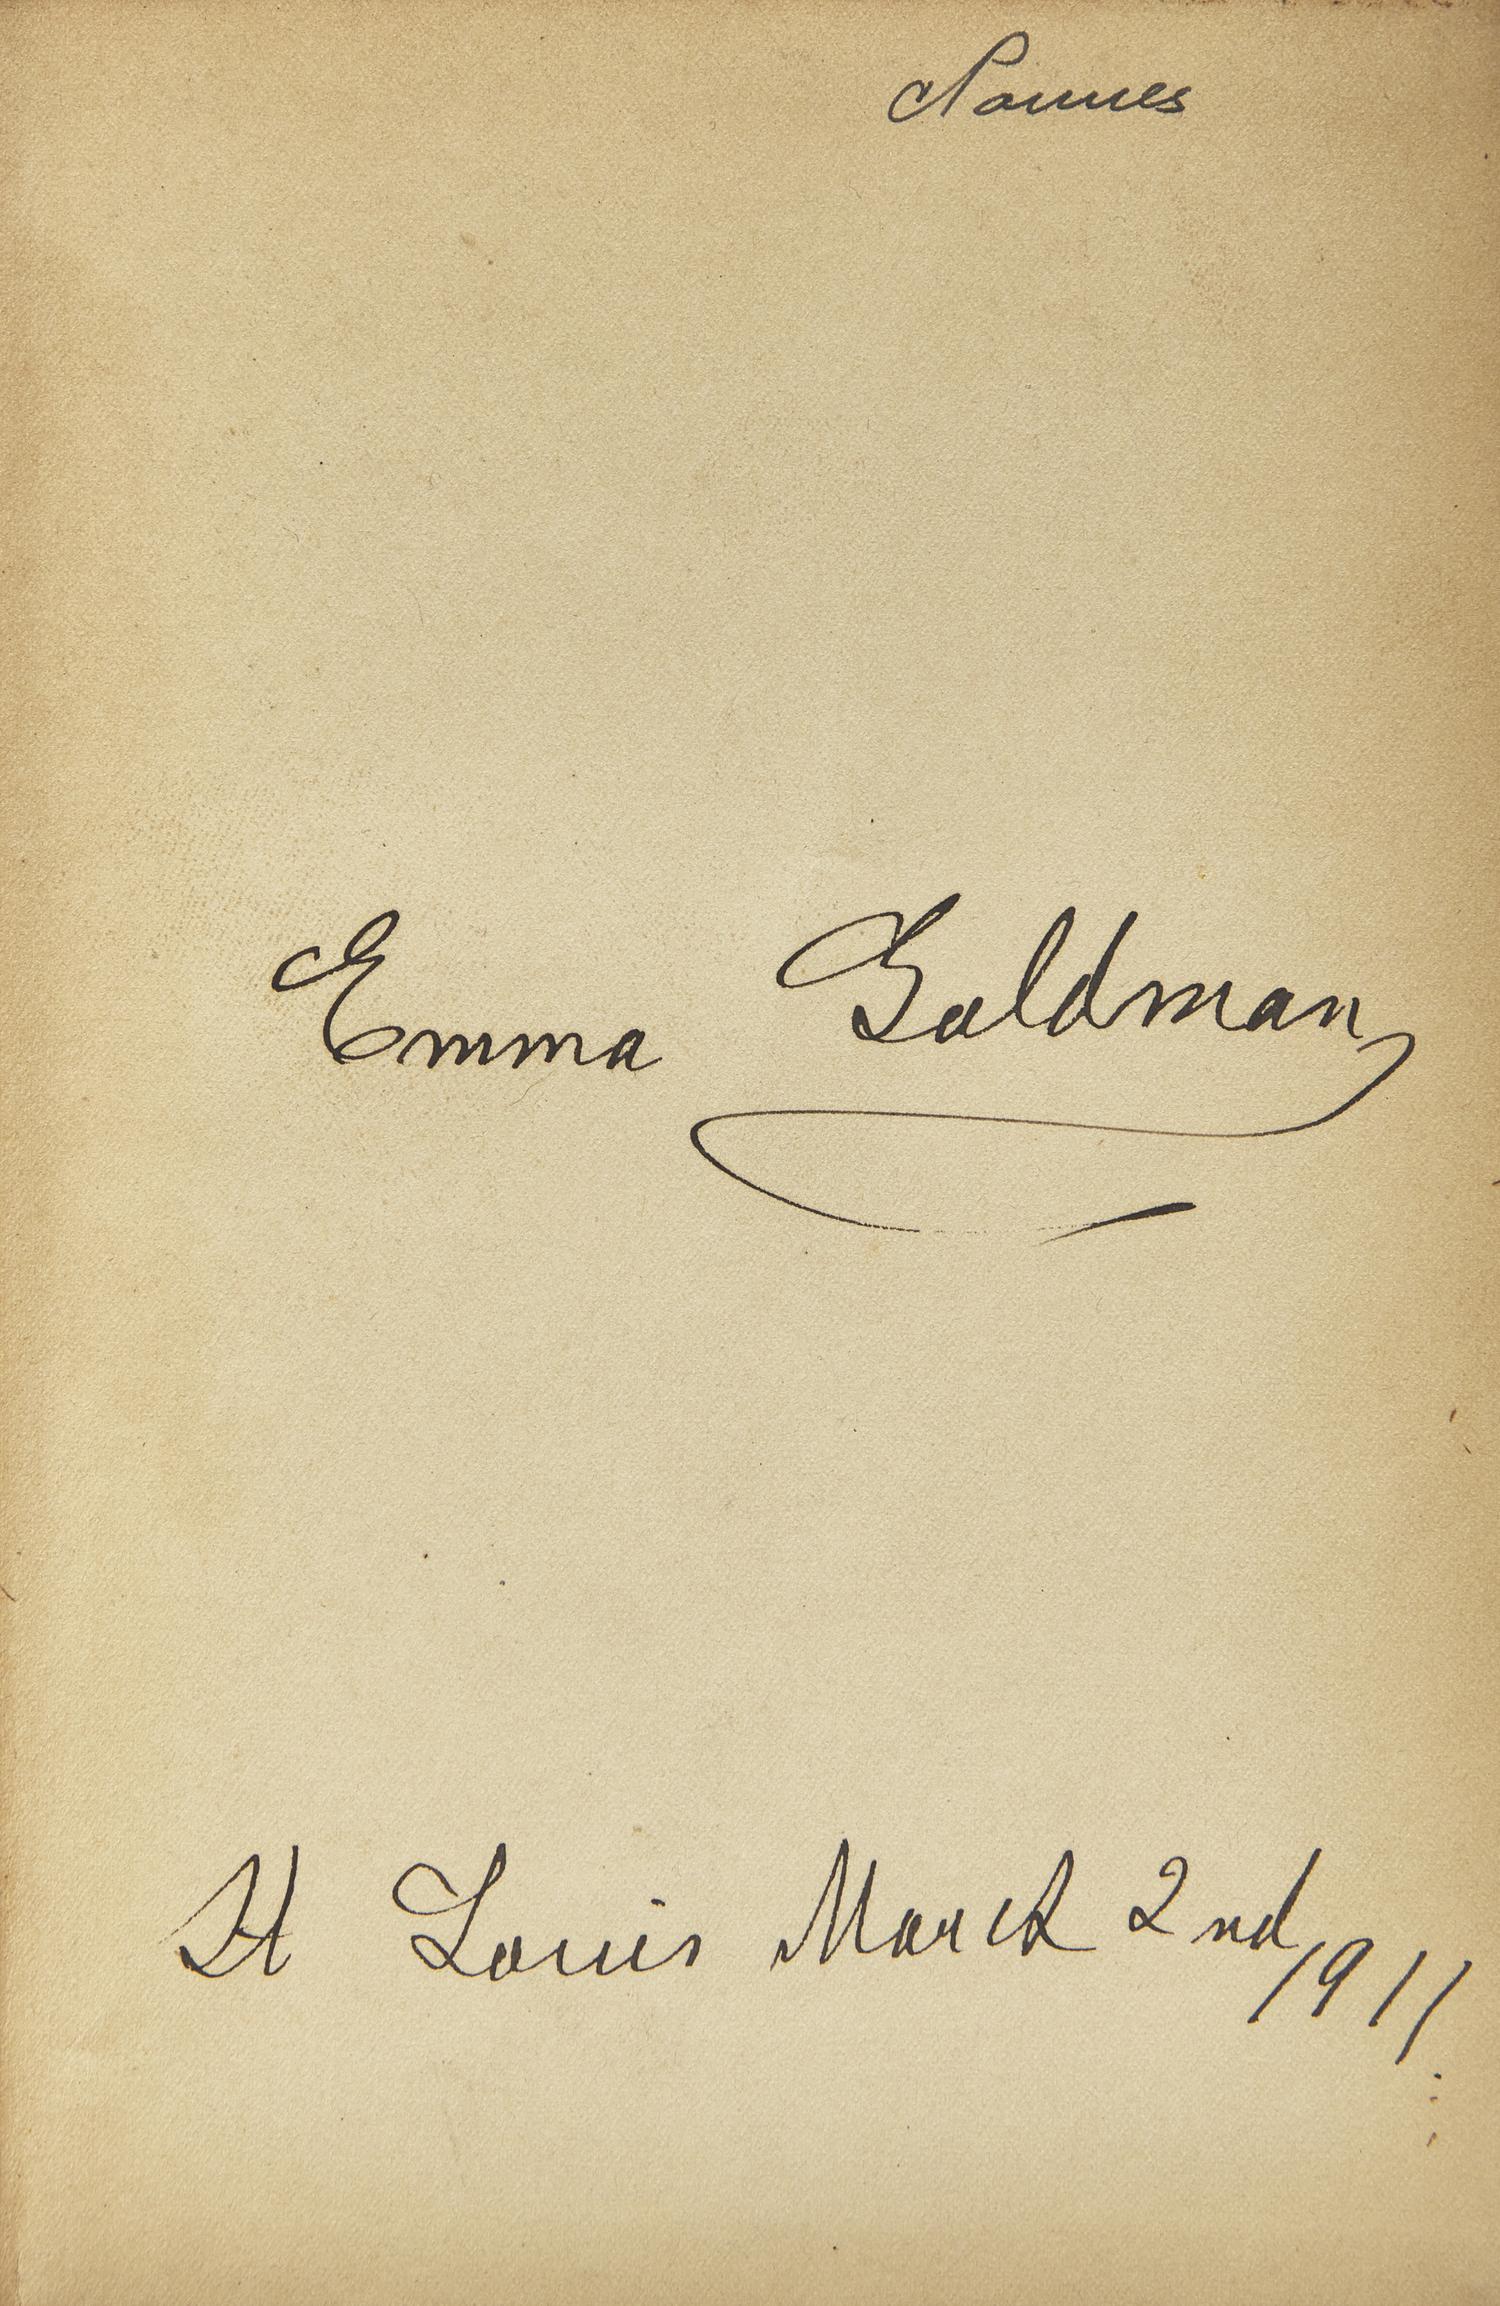 Emma Goldman
St Louis March 2nd
1911